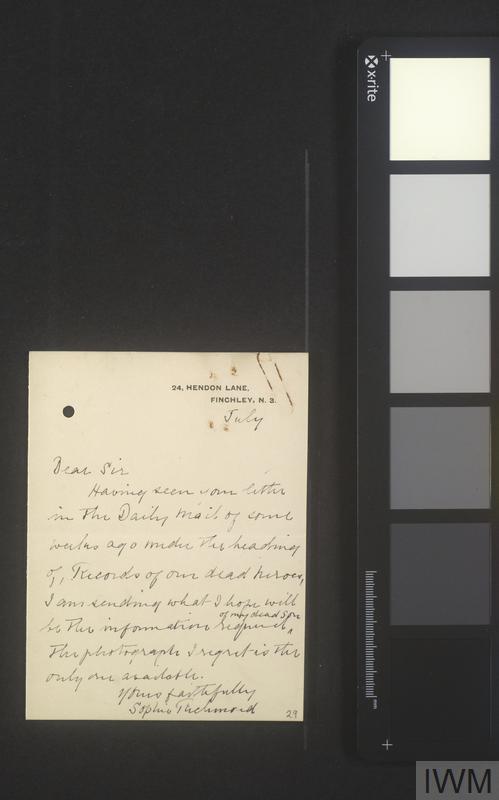 24, HENDON LANE,
FINCHLEY, N. 3.
July
Dear Sir
Having seen your letter
in the Daily Mail of some
weeks ago under the heading
of, Records of our dead heroes,
I am sending what I hope will
of my dead Son
be the information required ^
The photograph I regret is the
only one available.
Yours faithfully
Sophie Richmond
29
x-rite
mm
IWM